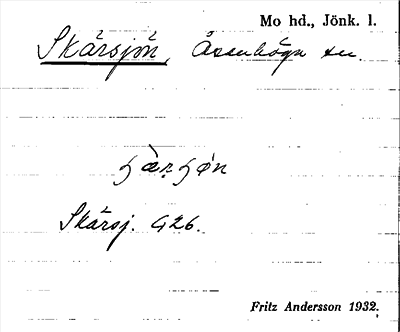 Mo hd., Jönk. l.
Skärsjön, Åsenhöga sn.
ɧæ̀rɧø̀n
Skärsj. G26.
Fritz Andersson 1932.